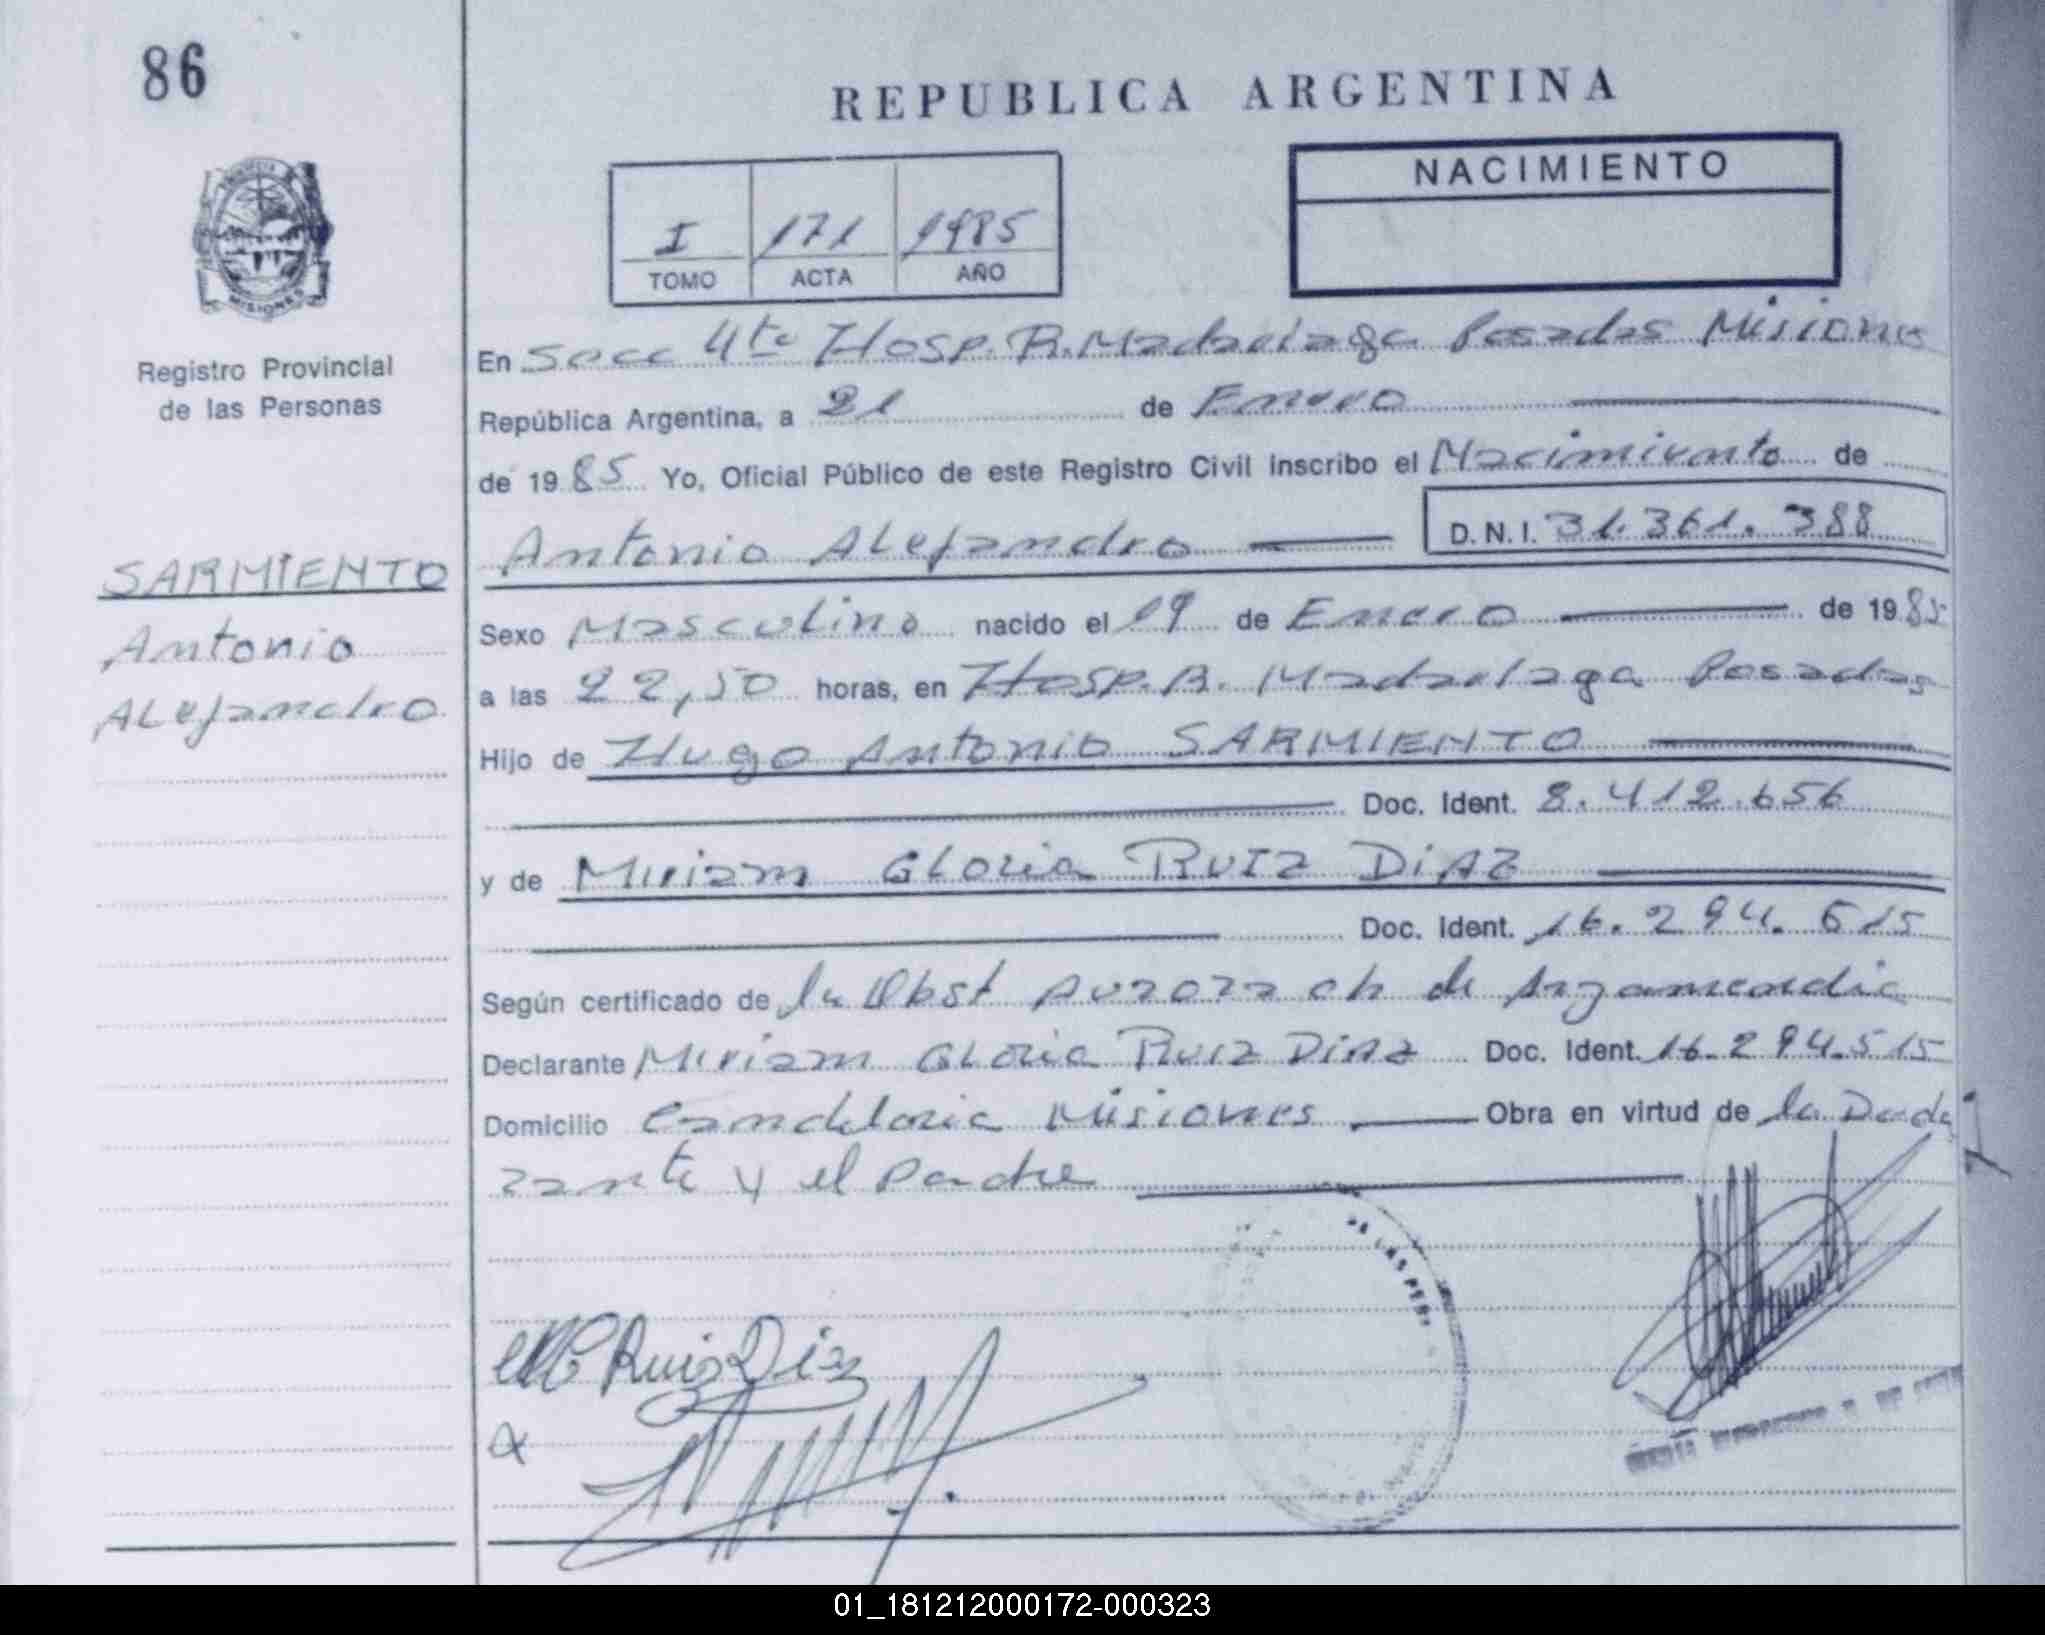 86
REPUBLICA ARGENTINA
NACIMIENTO
I 171 1985
TOMO ACTA AÑO
MISIONES
Registro Provincial
de las Personas
En Secc 4ta Hosp. R. Madariaga Posadas Misiones
República Argentina, a 21 de Enero
de 1985 Yo, Oficial Público de este Registro Civil inscribo el Nacimiento de
Antonio Alejandro D.N.I. 31.361.388
SARMIENTO
Antonio
Alejandro
Sexo Masculino nacido el 19 de Enero de 1985
a las 22,50 horas, en Hosp. R. Madariaga Posadas
Hijo de Hugo Antonio SARMIENTO
Doc. Ident. 8.412.656
y de Miriam Gloria RUIZ DIAZ
Doc. Ident. 16.294.515
Según certificado de la Obst Aurora ch de Argamendia
Declarante Miriam Gloria Ruiz Diaz Doc. Ident. 16.294.515
Domicilio Candelaria Misiones Obra en virtud de la Decla
rante y el Padre
Ruiz Diaz
DE LAS PER
01_181212000172-000323